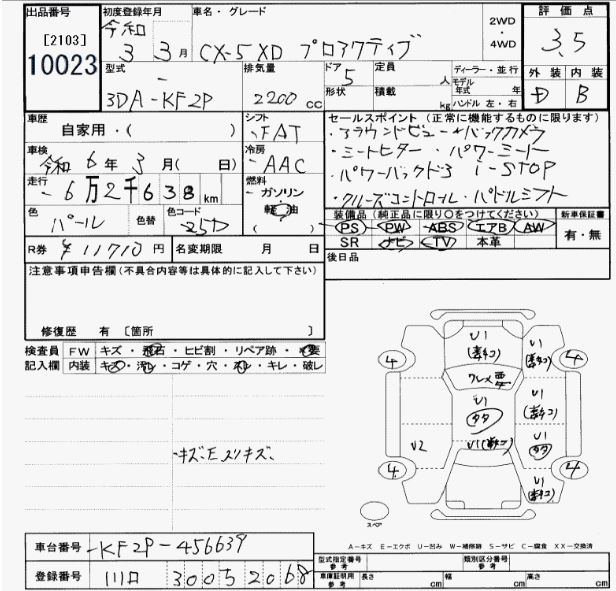 出品番号
[2103]
10023
初度登録年月 車名・グレード
令和 3 3月 CX-5 XD プロアクティブ
2WD
・
4WD
評価点
3.5
外装 内装
D B
型式 排気量 ドア 定員 ディーラー・並行
3DA-KF2P 2200 cc 5 人 モデル年式 年
形状 積載 kg ハンドル 左・右
車歴
自家用・( )
シフト
FAT
車検
令和 6年 3月( 日)
冷房
AAC
走行
6万2千638 km
燃料
ガソリン
軽油
( )
色 色替 色コード
パール 25D
R券 ¥11710 円 名変期限 月 日
セールスポイント (正常に機能するものに限ります)
・アラウンドビュー+バックカメラ
・シートヒーター・パワーシート
・パワーバックドア i-STOP
・クルーズコントロール・パドルシフト
装備品(純正品に限り○をつけてください) 新車保証書
PS PW ABS エアB AW 有・無
SR ナビ TV 本革
後日品
注意事項申告欄(不具合内容等は具体的に記入して下さい)
修復歴 有 [箇所 ]
検査員 FW キズ・飛石・ヒビ割・リペア跡・不要
記入欄 内装 キズ・汚れ・コゲ・穴・スレ・キレ・破レ
キズ、E スリキズ
U1
U1
4 4
U1
タタ
U2
U1
タタ
4 4
U1
スペア
A-キズ E-エクボ U-凹み W-補修跡 S-サビ C-腐食 XX-交換済
車台番号 KF2P-456639
登録番号 川口 300 そ 2068
型式指定番号 参考 類別区分番号 参考
車庫証明用 参考 長さ cm 幅 cm 高さ cm